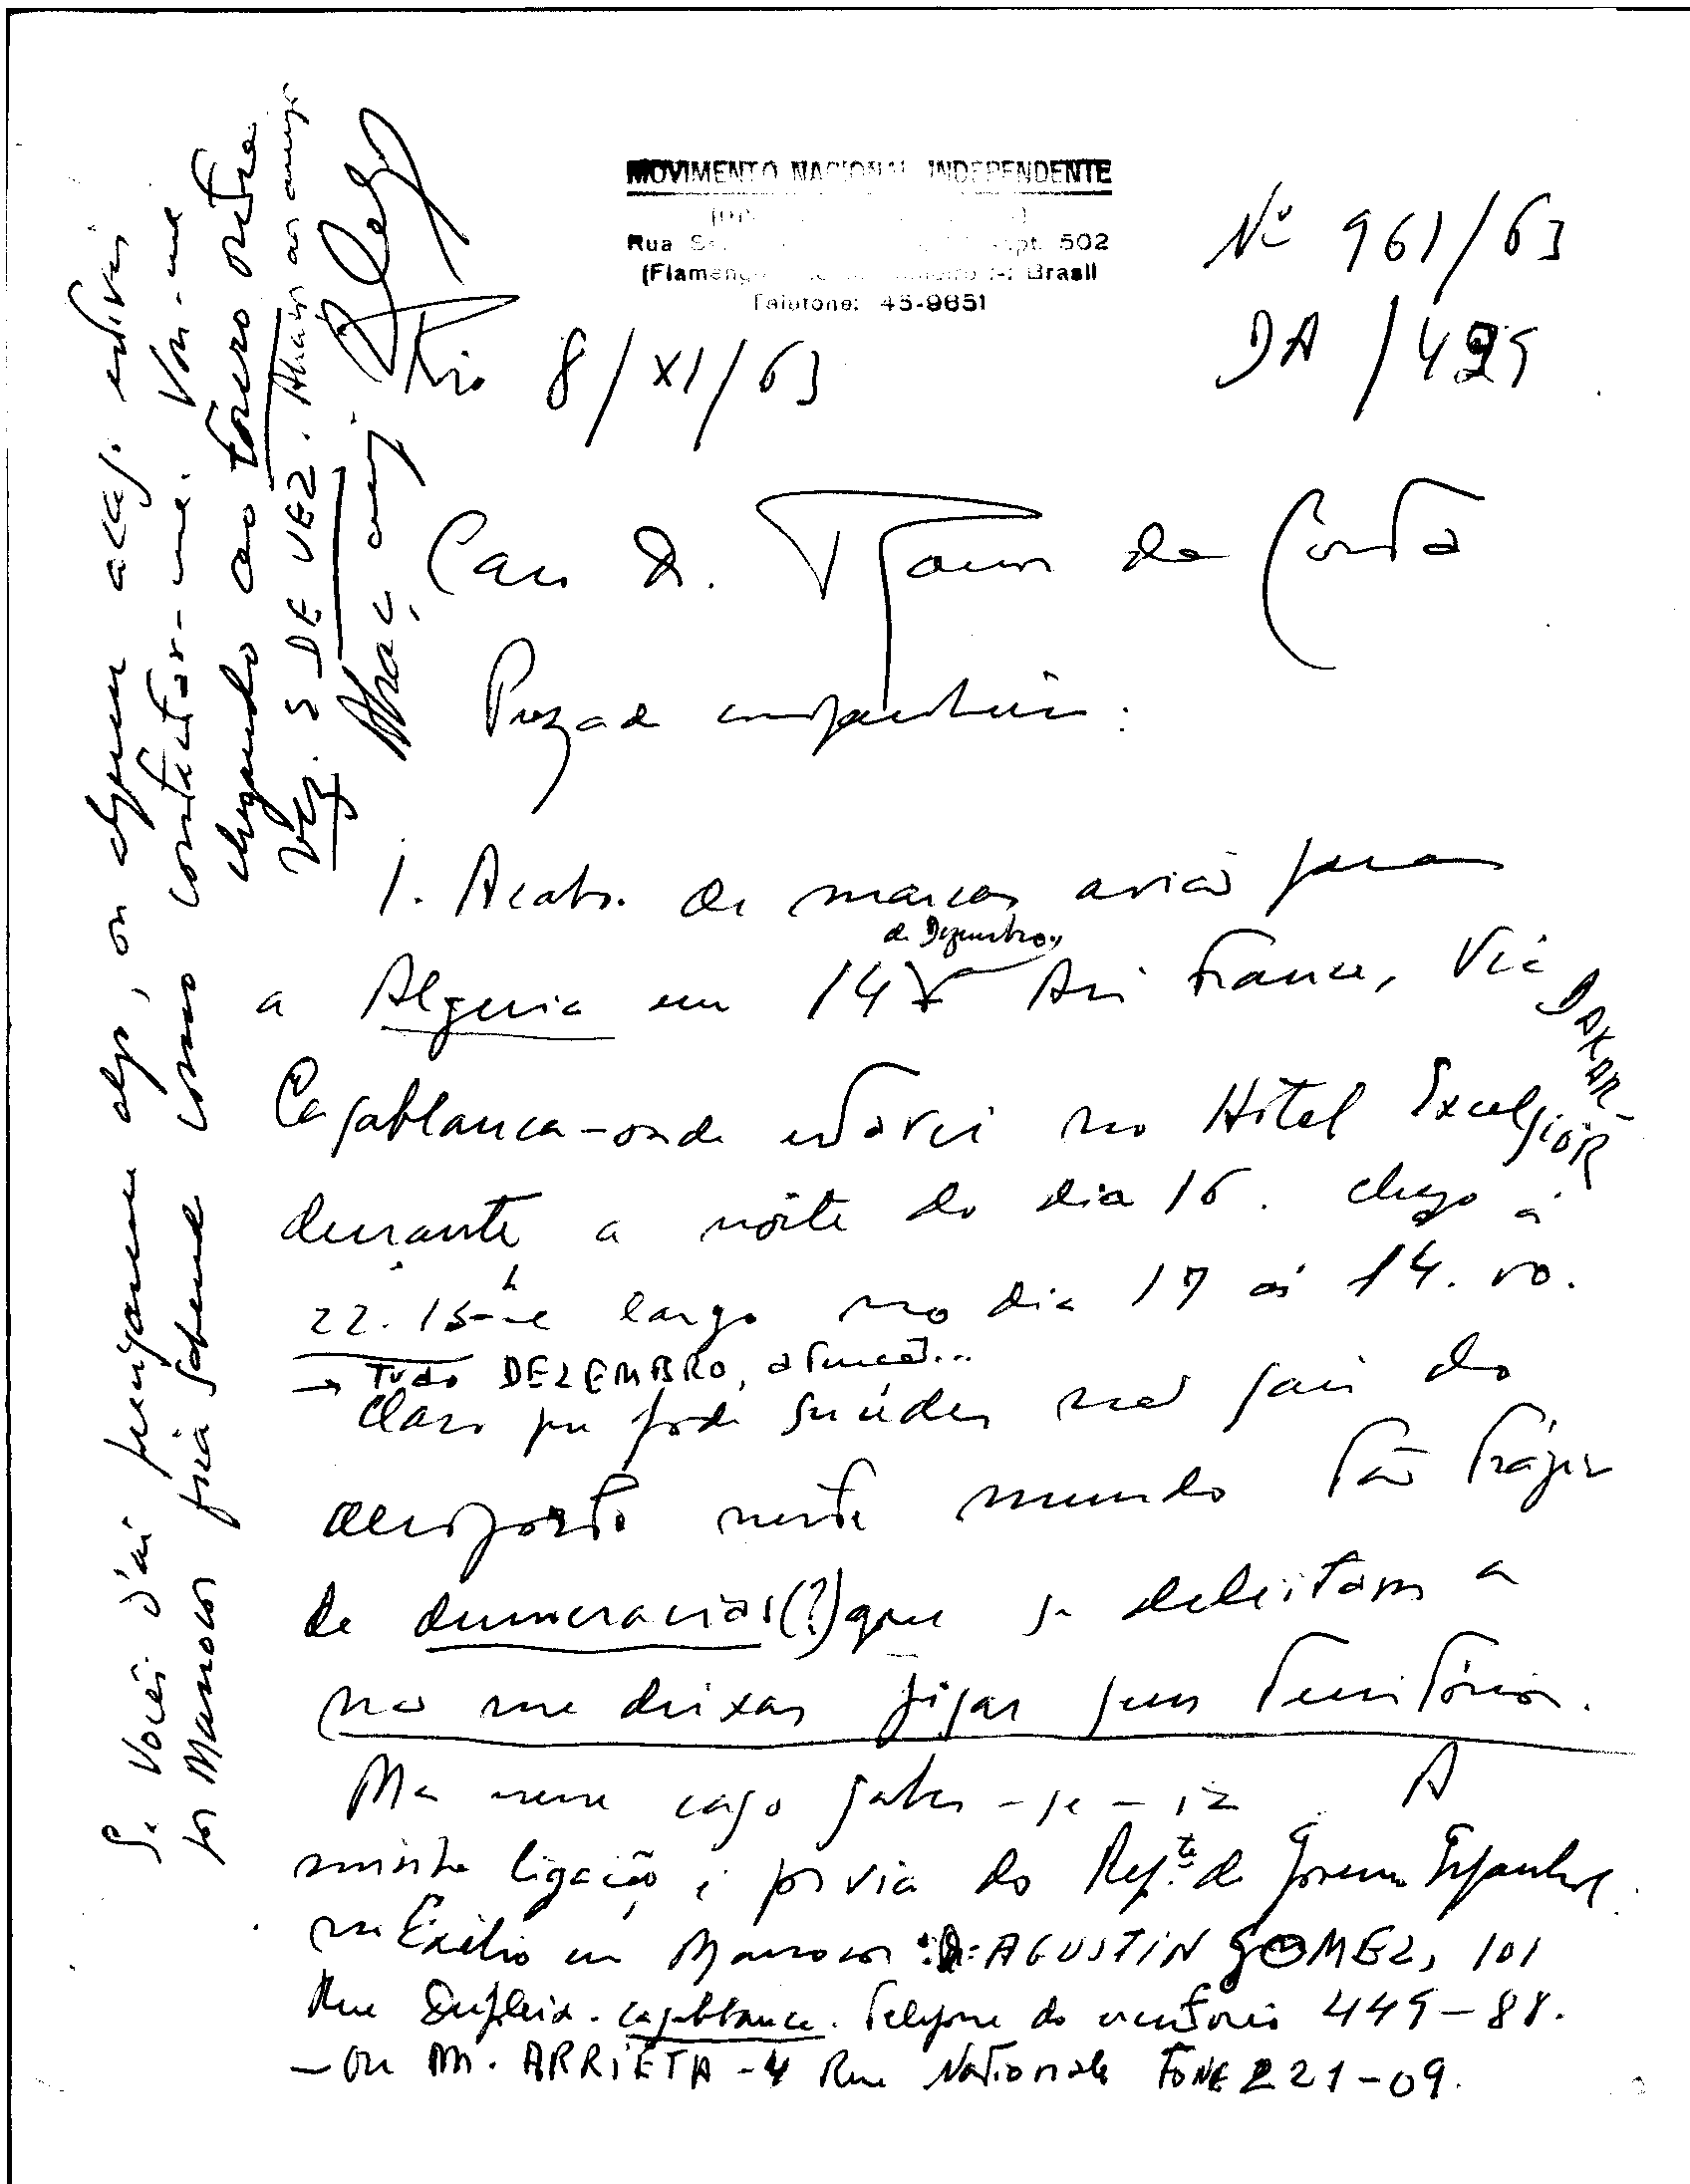 MOVIMENTO NACIONAL INDEPENDENTE
Rua S
apt. 502
(Flameng
Brasil
Telefone: 45-9651
Nº 961/63
DA /429
Rio 8/XI/63
Caro Dr.
da Costa
Prezado companheiro:
1. Acabo de marcar avião para
de Dezembro,
a Algeria em 14 Air France, Via DAKAR-
Casablanca-onde estarei no Hotel Excelsior
durante a noite do dia 16. Chego à
22.15 h e largo no dia 17 às 14.00.
→ TUDO DEZEMBRO, atenção...
Claro que pode suceder não sair do
aeroporto neste mundo tão trágico
de democracias(?) que se deleitam a
não me deixar pisar seus territórios.
Mas nesse caso saber-se-ia. A
minha ligação é por via do Rep.te do Governo Espanhol
no Exílio em Marrocos: Dr. AGUSTIN GOMEZ, 101
Rue Casablanca. Telefone do escritório 449-88.
- Ou M. ARRIETA - 4 Rue Nationale FONE 221-09.
Se Vocês daí precisarem algo, ou alguem acaj. estiver
por Marrocos fica sabendo como contactar-me. Vou-me
chegando ao touro outra
vez. E DE VEZ. Abraços ao amigo
Abraço amigo